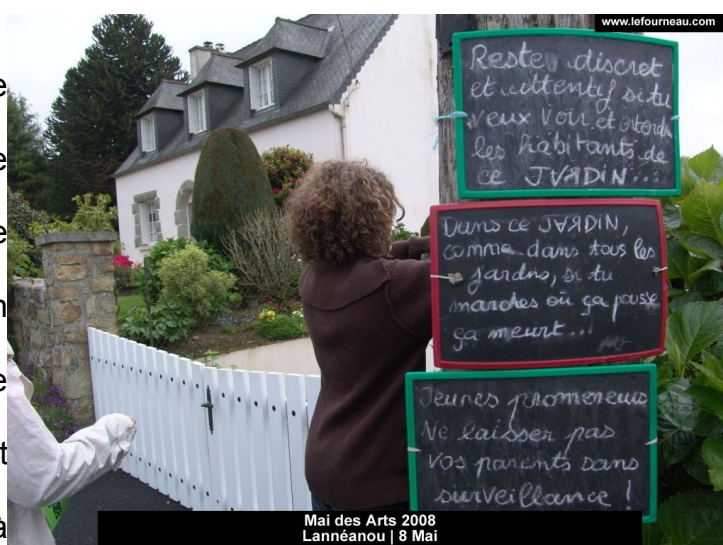 www.lefourneau.com
Reste discret
et attentif si tu
veux voir et entendre
les habitants de
ce JARDIN...
Dans ce JARDIN,
comme dans tous les
jardins, si tu
marches où ça pousse
ça meurt...!
Jeunes promeneurs
Ne laisser pas
vos parents sans
surveillance !
Mai des Arts 2008
Lannéanou | 8 Mai